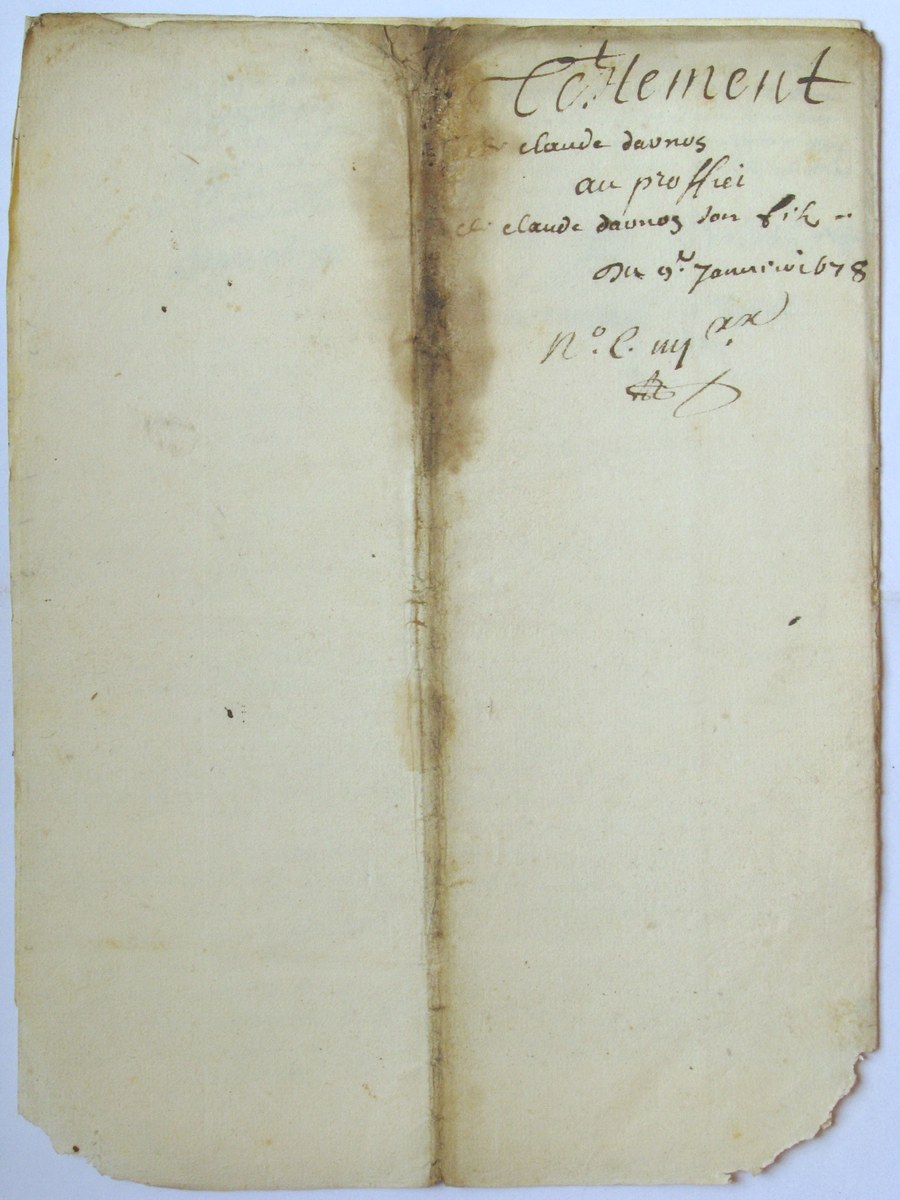 Testement
de claude davnos
au proffiei
de claude davnos son filz
du 9.e Janvier 1678
N.o C. iiij xx